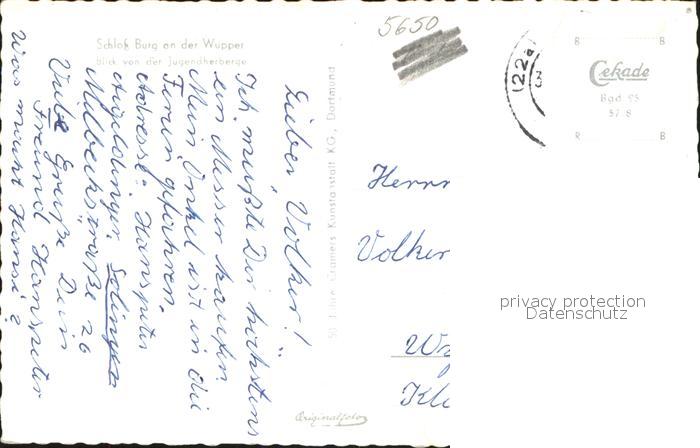 5650
Schloß Burg an der Wupper
Blick von der Jugendherberge
Lieber Volker!
Ich müßte Dir höchstens
ein Messer kaufen.
Mein Onkel ist in die
Ferien gefahren.
Adresse: Hanspeter
Solingen
Milbeckstraße 26
Viele Grüße Dein
Freund Hanspeter
Was macht Hansi?
50 Jahre Cramers Kunstanstalt KG., Dortmund
Originalfoto
(22a
Cekade
Bad 95
57 8
R
B
Herrn
Volker
privacy protection
Datenschutz